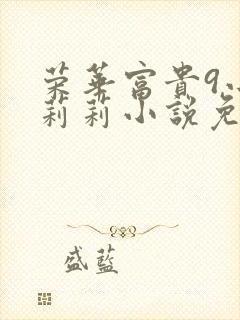 荣华富貴9
莉莉小説免
盛藍